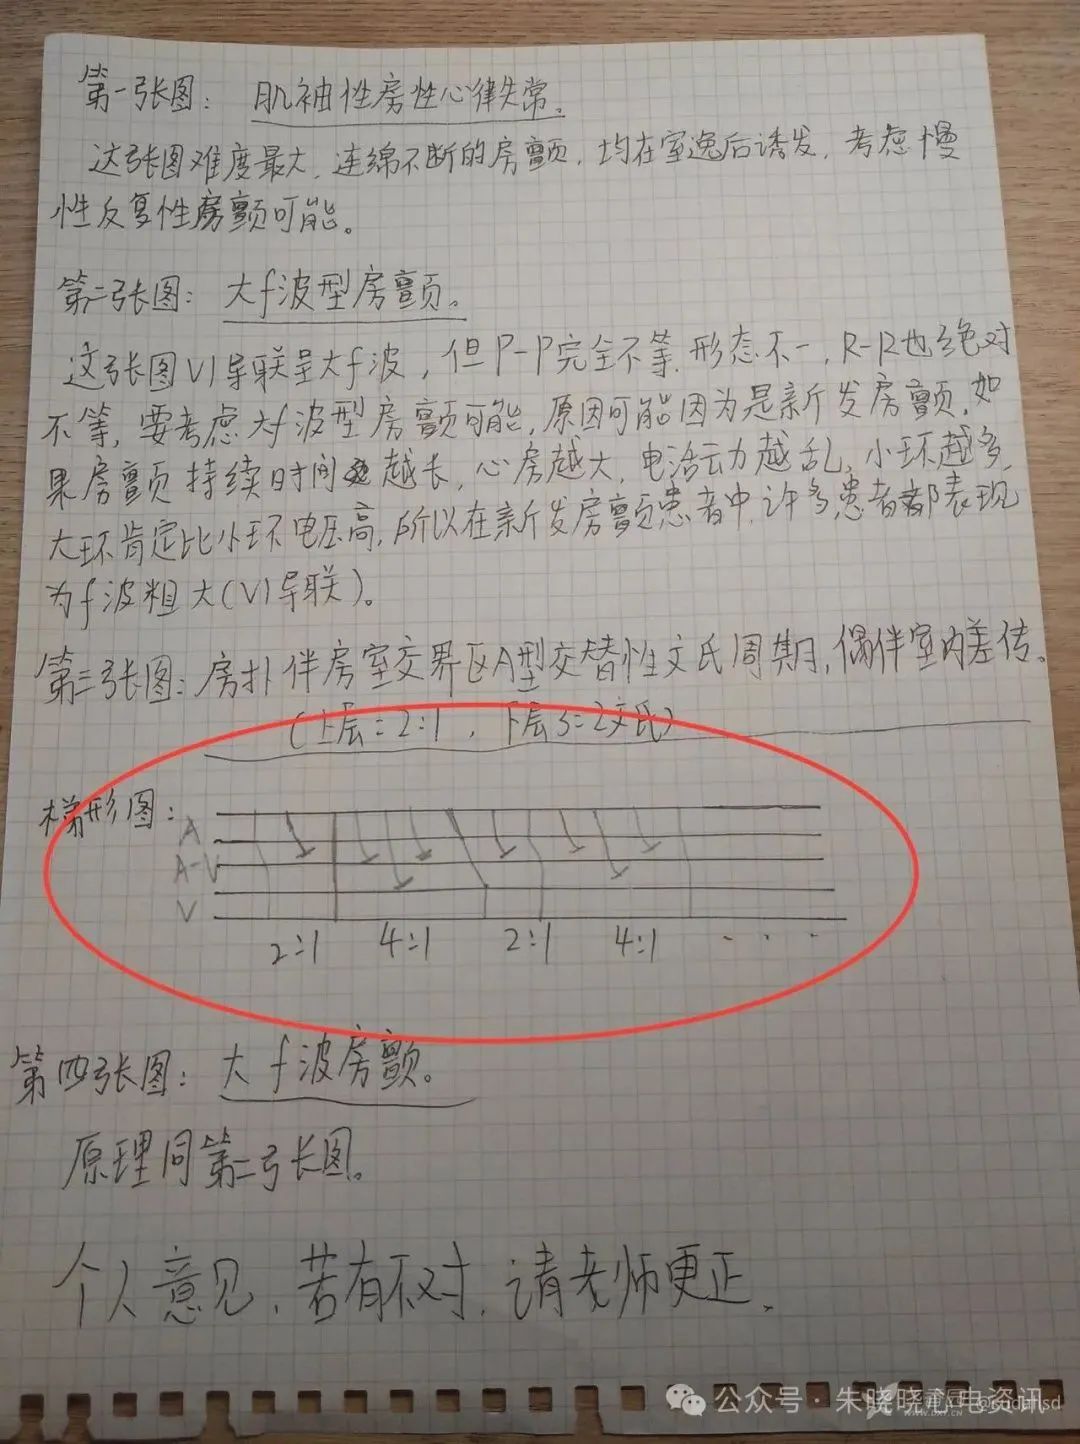 第一张图：肌袖性房性心律失常。
这张图难度最大，连绵不断的房颤，均在室逸后诱发，考虑慢
性反复性房颤可能。
第二张图：大f波型房颤。
这张图V1导联呈大f波，但P-P完全不等，形态不一，R-R也绝对
不等，要考虑大f波型房颤可能，原因可能因为是新发房颤，如
果房颤持续时间越长，心房越大，电活动越乱，小环越多，
大环肯定比小环电压高，所以在新发房颤患者中，许多患者都表现
为f波粗大(V1导联)。
第三张图：房扑伴房室交界区A型交替性文氏周期，偶伴室内差传。
(上层=2:1，下层3:2文氏)
梯形图：
A
A-V
V
2:1 4:1 2:1 4:1 · · ·
第四张图：大f波房颤。
原理同第二张图。
个人意见，若有不对，请老师更正。
公众号·朱晓晓心电资讯